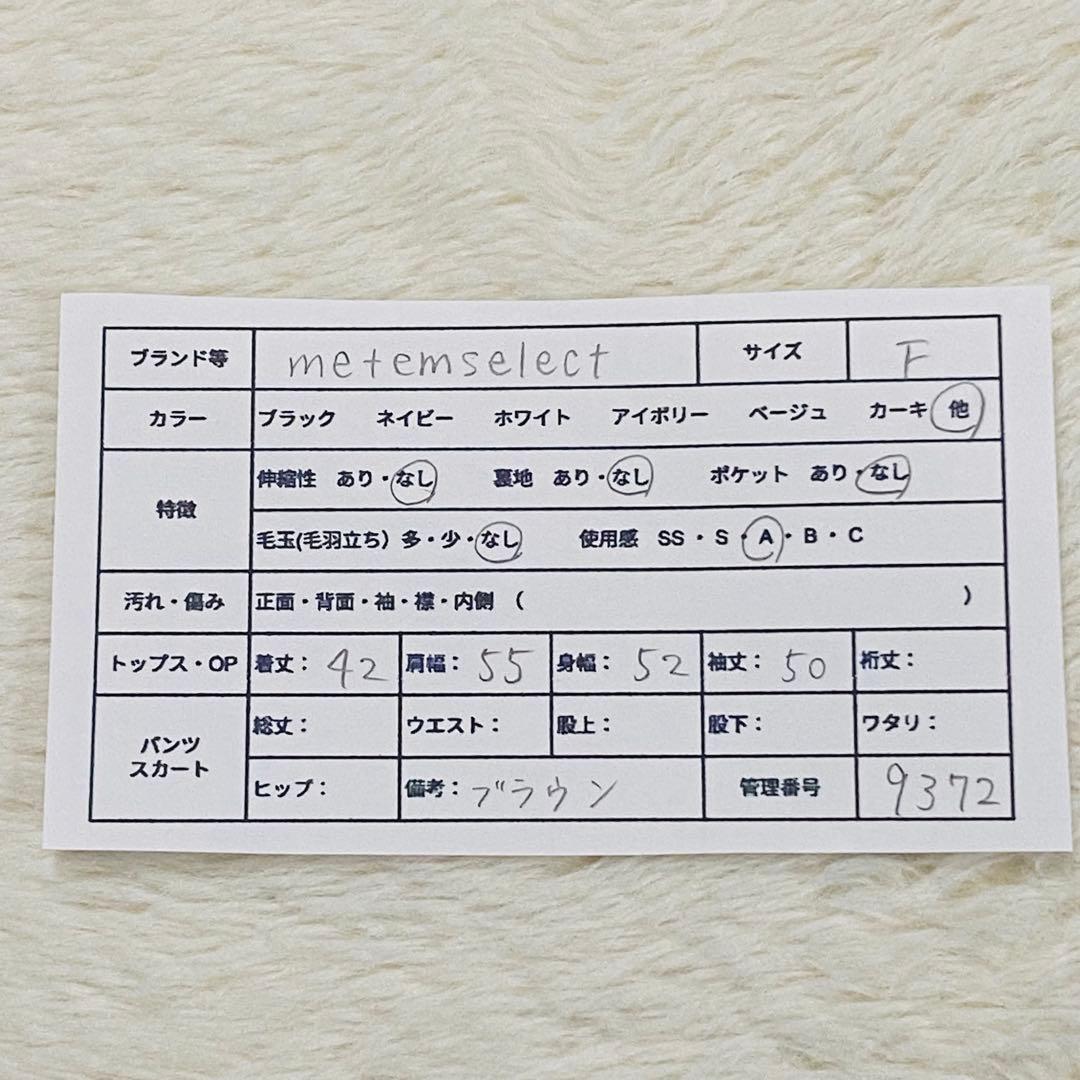 ブランド等 metemselect サイズ F
カラー ブラック ネイビー ホワイト アイボリー ベージュ カーキ 他
特徴 伸縮性 あり・なし 裏地 あり・なし ポケット あり・なし
毛玉(毛羽立ち) 多・少・なし 使用感 SS・S・A・B・C
汚れ・傷み 正面・背面・袖・襟・内側 ( )
トップス・OP 着丈：42 肩幅：55 身幅：52 袖丈：50 裄丈：
パンツ スカート 総丈： ウエスト： 股上： 股下： ワタリ：
ヒップ： 備考：ブラウン 管理番号 9372